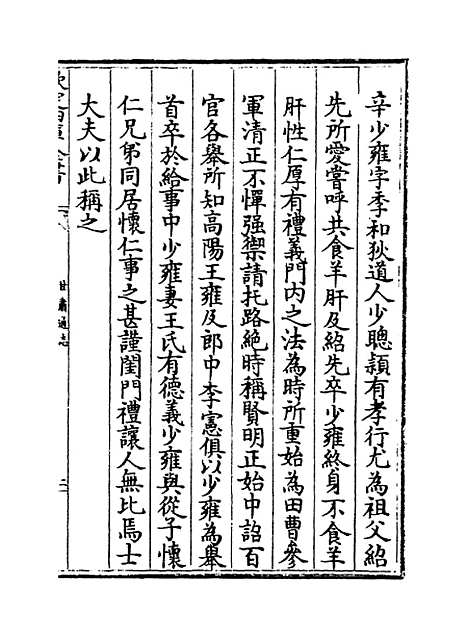 辛少雍字季和狄道人少聰頴有孝行尤為祖父紹
先所愛嘗呼共食羊肝及紹先卒少雍終身不食羊
肝性仁厚有禮義門内之法為時所重始為田曹參
軍清正不憚强禦請托路絶時稱賢明正始中詔百
官各舉所知高陽王雍及郎中李憲俱以少雍為舉
首卒於給事中少雍妻王氏有德義少雍與從子懷
仁兄弟同居懷仁事之甚謹閨門禮讓人無比焉士
大夫以此稱之
甘肅通志